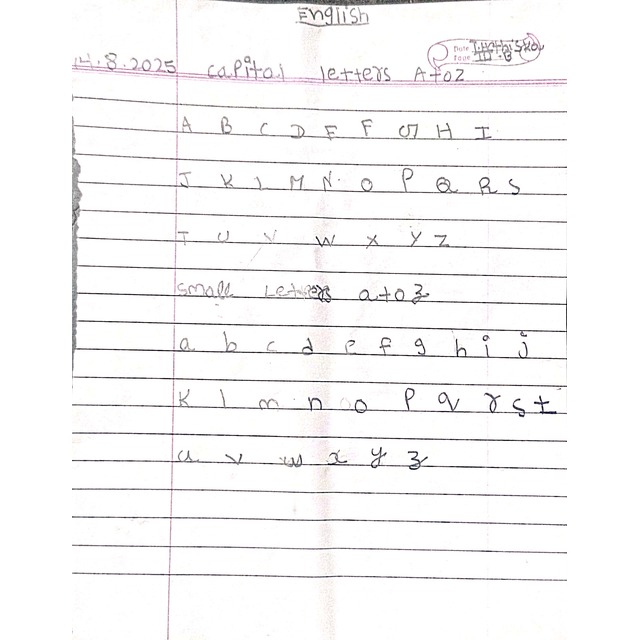 English
14.8.2025 capital letters A to Z
A B C D E F G H I
J K L M N O P Q R S
T U V W X Y Z
small Letters a to z
a b c d e f g h i j
k l m n o p q r s t
u v w x y z